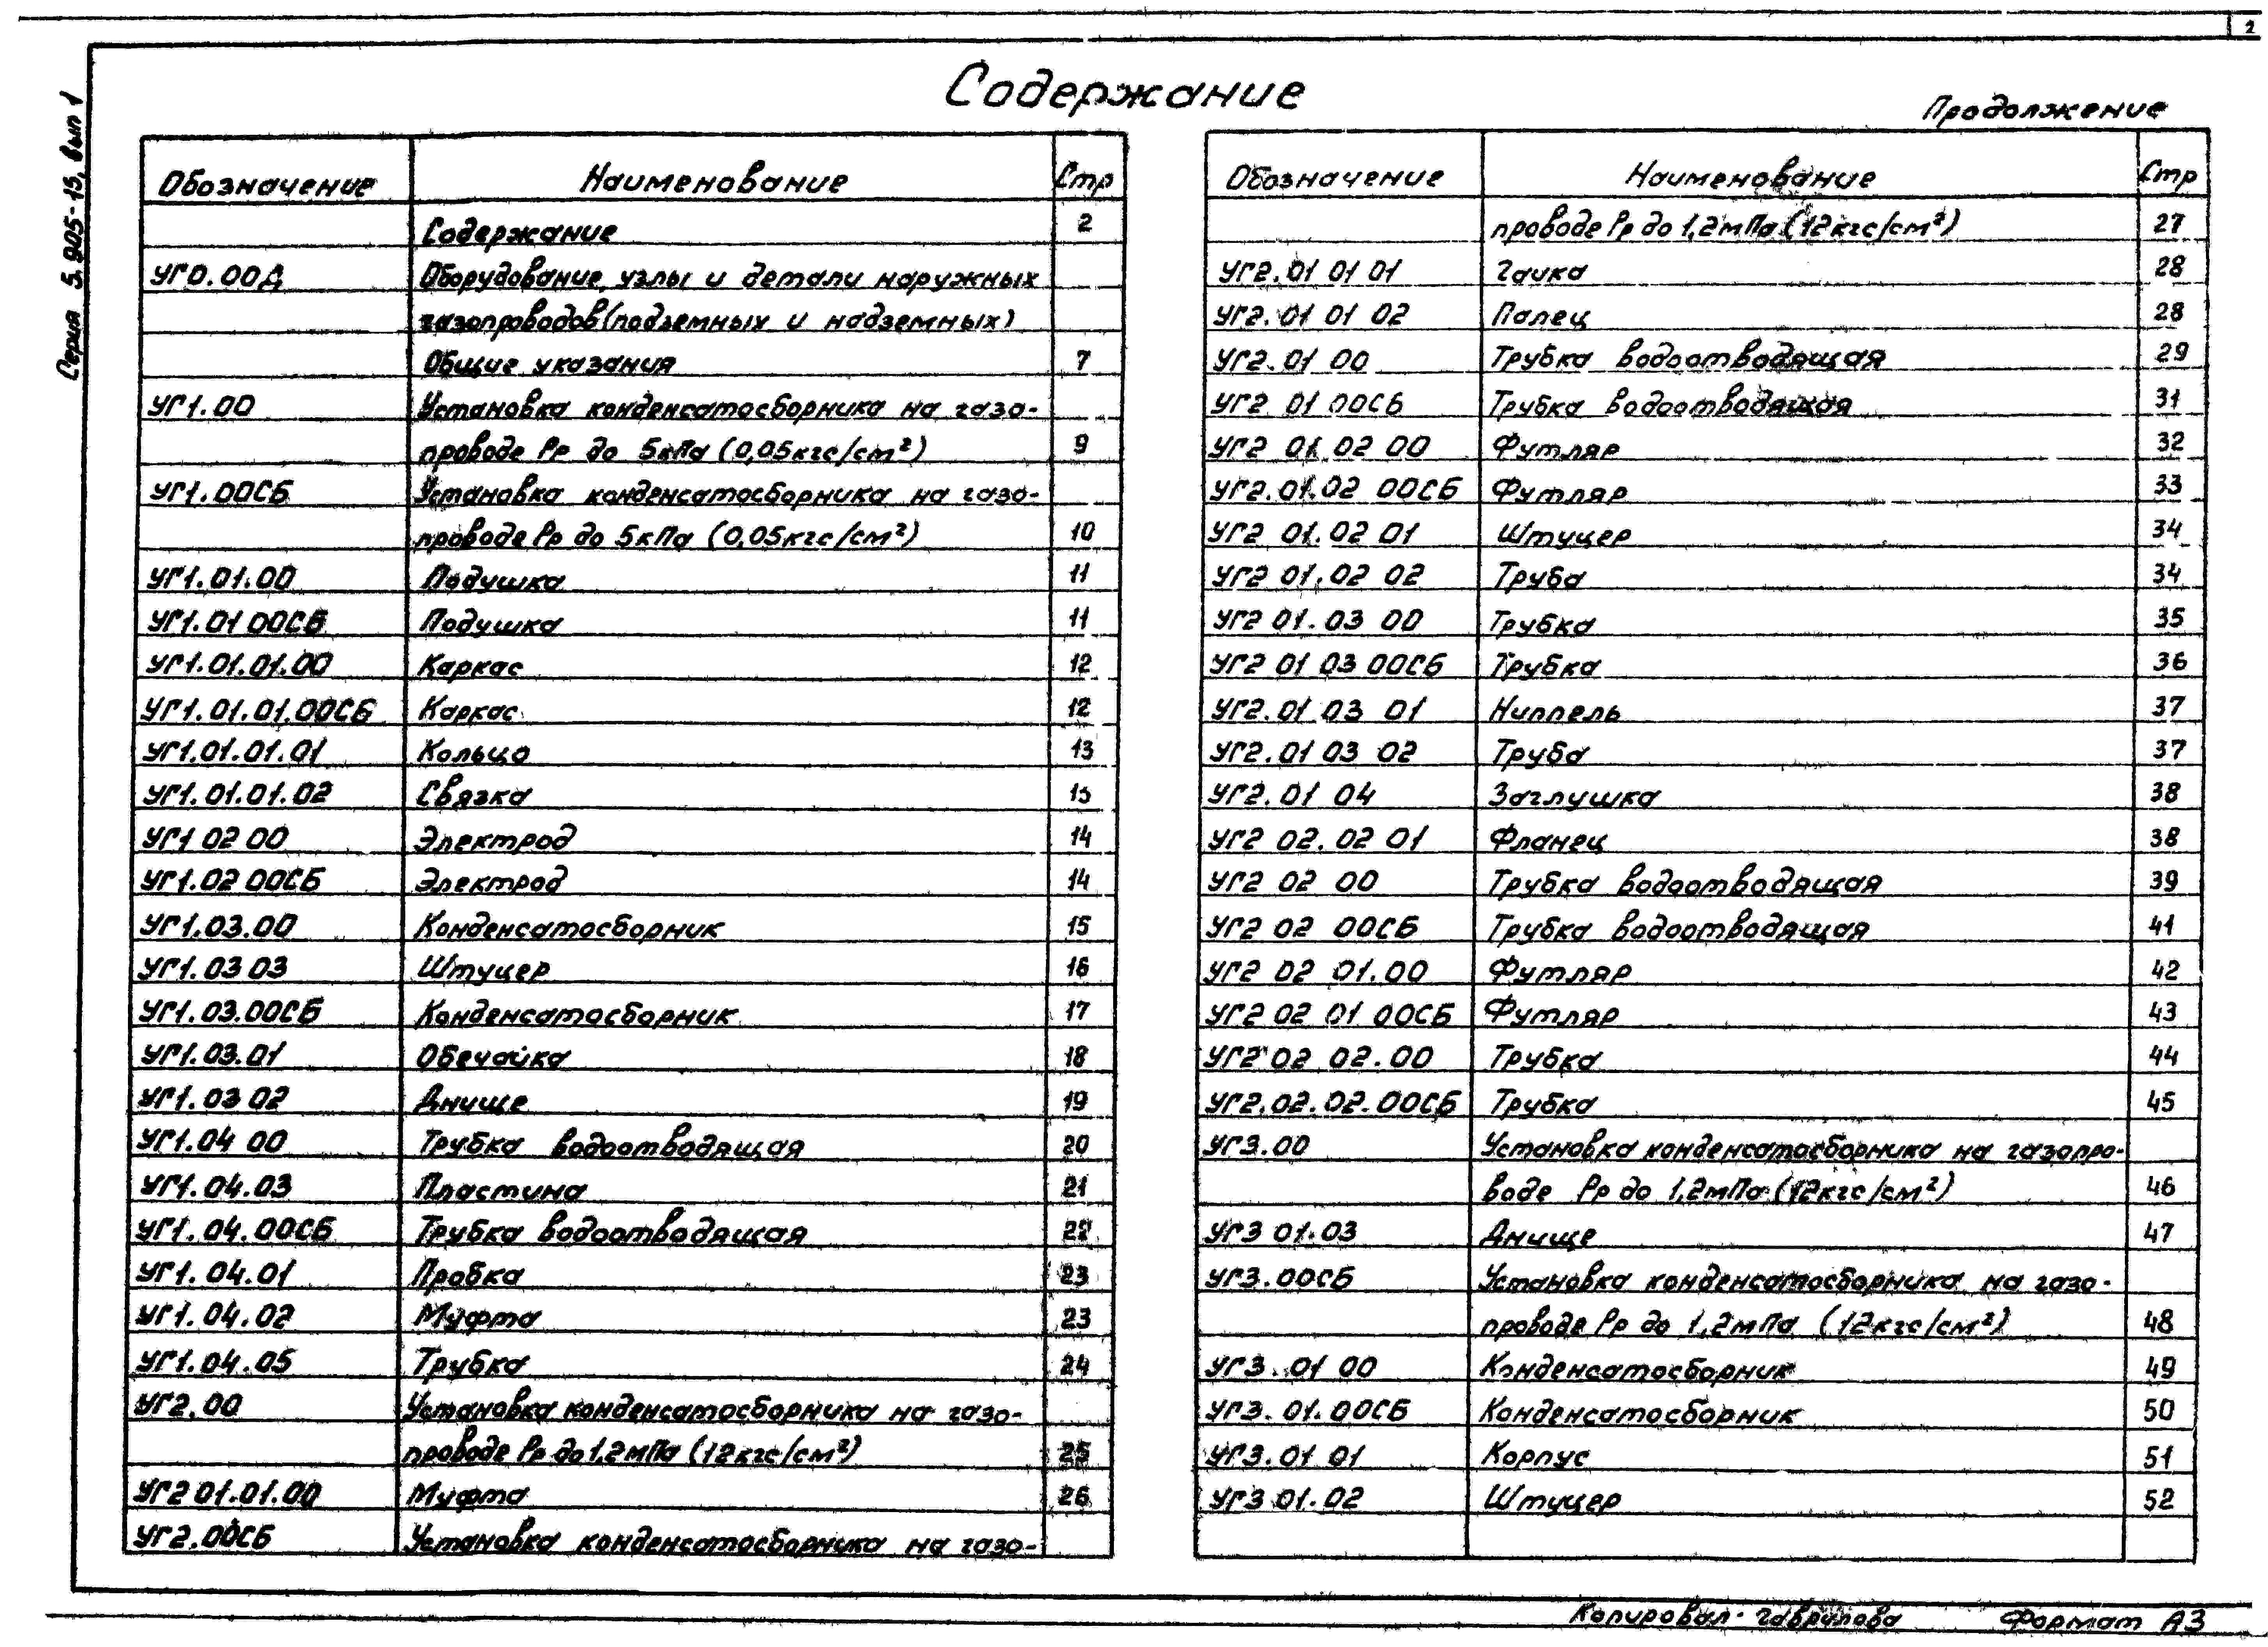 2
Серия 5.905-15, вып 1
Содержание
Обозначение Наименование Стр
Содержание 2
УГ0.00Д Оборудование, узлы и детали наружных
газопроводов (подземных и надземных)
Общие указания 7
УГ1.00 Установка конденсатосборника на газо-
проводе Рр до 5кПа (0,05кгс/см²) 9
УГ1.00СБ Установка конденсатосборника на газо-
проводе Рр до 5кПа (0,05кгс/см²) 10
УГ1.01.00 Подушка 11
УГ1.01 00СБ Подушка 11
УГ1.01.01.00 Каркас 12
УГ1.01.01.00СБ Каркас 12
УГ1.01.01.01 Кольцо 13
УГ1.01.01.02 Связка 13
УГ1 02 00 Электрод 14
УГ1.02 00СБ Электрод 14
УГ1.03.00 Конденсатосборник 15
УГ1.03 03 Штуцер 16
УГ1.03.00СБ Конденсатосборник 17
УГ1.03.01 Обечайка 18
УГ1.03 02 Днище 19
УГ1.04 00 Трубка водоотводящая 20
УГ1.04.03 Пластина 21
УГ1.04.00СБ Трубка водоотводящая 22
УГ1.04.01 Пробка 23
УГ1.04.02 Муфта 23
УГ1.04.05 Трубка 24
УГ2.00 Установка конденсатосборника на газо-
проводе Рр до 1,2мПа (12кгс/см²) 25
УГ2 01.01.00 Муфта 26
УГ2.00СБ Установка конденсатосборника на газо-
Продолжение
Обозначение Наименование Стр
проводе Рр до 1,2мПа (12кгс/см²) 27
УГ2.01 01 01 Гайка 28
УГ2.01 01 02 Палец 28
УГ2.01 00 Трубка водоотводящая 29
УГ2 01 00СБ Трубка водоотводящая 31
УГ2 01.02 00 Футляр 32
УГ2.01.02 00СБ Футляр 33
УГ2 01.02 01 Штуцер 34
УГ2 01.02 02 Труба 34
УГ2 01.03 00 Трубка 35
УГ2 01 03 00СБ Трубка 36
УГ2.01 03 01 Ниппель 37
УГ2.01 03 02 Труба 37
УГ2.01 04 Заглушка 38
УГ2 02.02 01 Фланец 38
УГ2 02 00 Трубка водоотводящая 39
УГ2 02 00СБ Трубка водоотводящая 41
УГ2 02 01.00 Футляр 42
УГ2 02 01 00СБ Футляр 43
УГ2 02 02.00 Трубка 44
УГ2.02.02.00СБ Трубка 45
УГ3.00 Установка конденсатосборника на газопро-
воде Рр до 1,2мПа (12кгс/см²) 46
УГ3 01.03 Днище 47
УГ3.00СБ Установка конденсатосборника на газо-
проводе Рр до 1,2мПа (12кгс/см²) 48
УГ3.01 00 Конденсатосборник 49
УГ3.01.00СБ Конденсатосборник 50
УГ3.01 01 Корпус 51
УГ3 01.02 Штуцер 52
Копировал- Гаврилова Формат А3